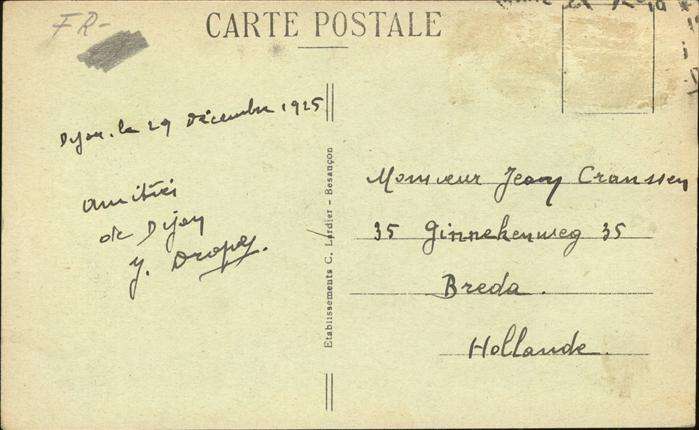 FR-
CARTE POSTALE
Dijon. le 29 décembre 1925
amitiés
de Dijon
y.
Etablissements C. Lardier - Besançon
Monsieur Jeany Cranssen
35 Ginnekenweg 35
Breda.
Hollande.